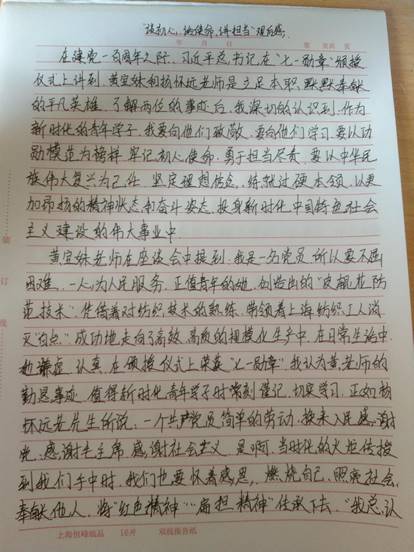 "铭初心,担使命,讲担当"观后感
年 月 日 第 页 共 页
在建党一百周年之际,习近平总书记在"七一勋章"颁授
仪式上讲到,黄宝妹和杨怀远老师是立足本职、默默奉献
的平凡英雄,了解两位的事迹后,我深切的认识到,作为
新时代的青年学子,我要向他们致敬,要向他们学习,要以功
勋模范为榜样,牢记初心使命,勇于担当尽责,要以中华民
族伟大复兴为己任,坚定理想信念,练就过硬本领,以更
加昂扬的精神状态和奋斗姿态,投身新时代中国特色社会
主义建设的伟大事业中
黄宝妹老师在座谈会中提到,我是一名党员,所以要不畏
困难,一人为人民服务,正值青年的她,创造出的"皮辊花防
范技术",凭借着对纺织技术的熟练,带领着上海纺织工人消
灭"白点",成功地走向了高效、高质的规模化生产中,在日常生活中,
她谦虚、认真,在颁授仪式上荣获"七一勋章",我认为黄老师的
勤恳事迹,值得新时代青年学子时常刻谨记,切实学习,正如杨
怀远先生所说,一个共产党员简单的劳动,换来人民感谢
党,感谢毛主席,感谢社会主义,是啊,当时代的火炬传授
到我们手中时,我们也要怀着感恩,燃烧自己,照亮社会,
奉献他人,将"红色精神""扁担精神"传承下去,"我总认
装
订
线
上海恒峰纸品 16开 双线报告纸